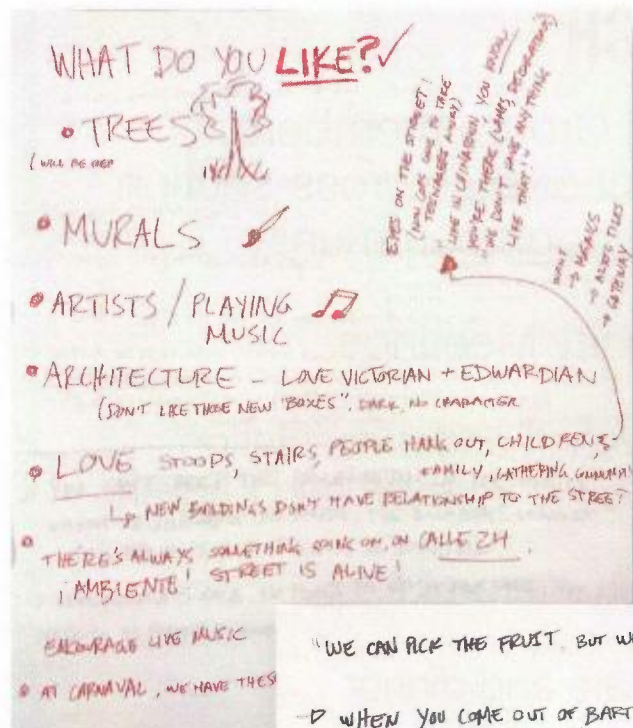 WHAT DO YOU LIKE?
• TREES
(WILL BE
• MURALS
• ARTISTS / PLAYING
MUSIC
• ARCHITECTURE - LOVE VICTORIAN + EDWARDIAN
(DON'T LIKE THOSE NEW "BOXES", DARK, NO CHARACTER
• LOVE STOOPS, STAIRS, PEOPLE HANG OUT, CHILDREN,
FAMILY, GATHERING,
↳ NEW BUILDINGS DON'T HAVE RELATIONSHIP TO THE STREET!
• THERE'S ALWAYS SOMETHING GOING ON, ON CALLE 24
¡AMBIENTE! STREET IS ALIVE!
ENCOURAGE LIVE MUSIC
• AT CARNAVAL, WE HAVE THESE
EYES ON THE STREET!
(NOW COPS COME TO TAKE
TEENAGERS AWAY)
YOU KNOW
YOU'RE THERE (LAMPS, DECORATIONS)
WE DON'T HAVE ANYTHING
LIKE THAT!
WANT
→ MURALS
→ AZTEC TILES
→ GATEWAY
"WE CAN PICK THE FRUIT. BUT WE
→ WHEN YOU COME OUT OF BART